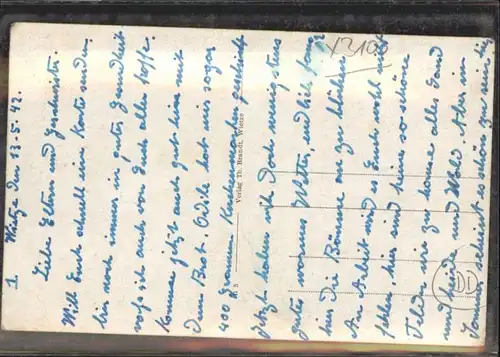 1. Wietze den 13.5.42.
Liebe Eltern und Geschwister.
Will Euch schnell ein Karte senden
bin noch immer in guter gesundheit
was ich auch von Euch alles hoffe.
Komme jetzt auch gut hin mit
dem Brot Odile hat mir sogar
400 gramm Kuchenmarken geschickt
jetzt haben wir doch wenigstens
gutes warmes Wetter, endlich fangen
hier Die Bäume an zu blühen
An Arbeit wird es Euch noch nicht
fehlen, hier sind keine so schöne
Felder wie zu hause alles Sand
und heide und Wald. Aber im
Sommer scheint es schön zu sein hier
Verlag Th. Brandt, Wietze
X3100